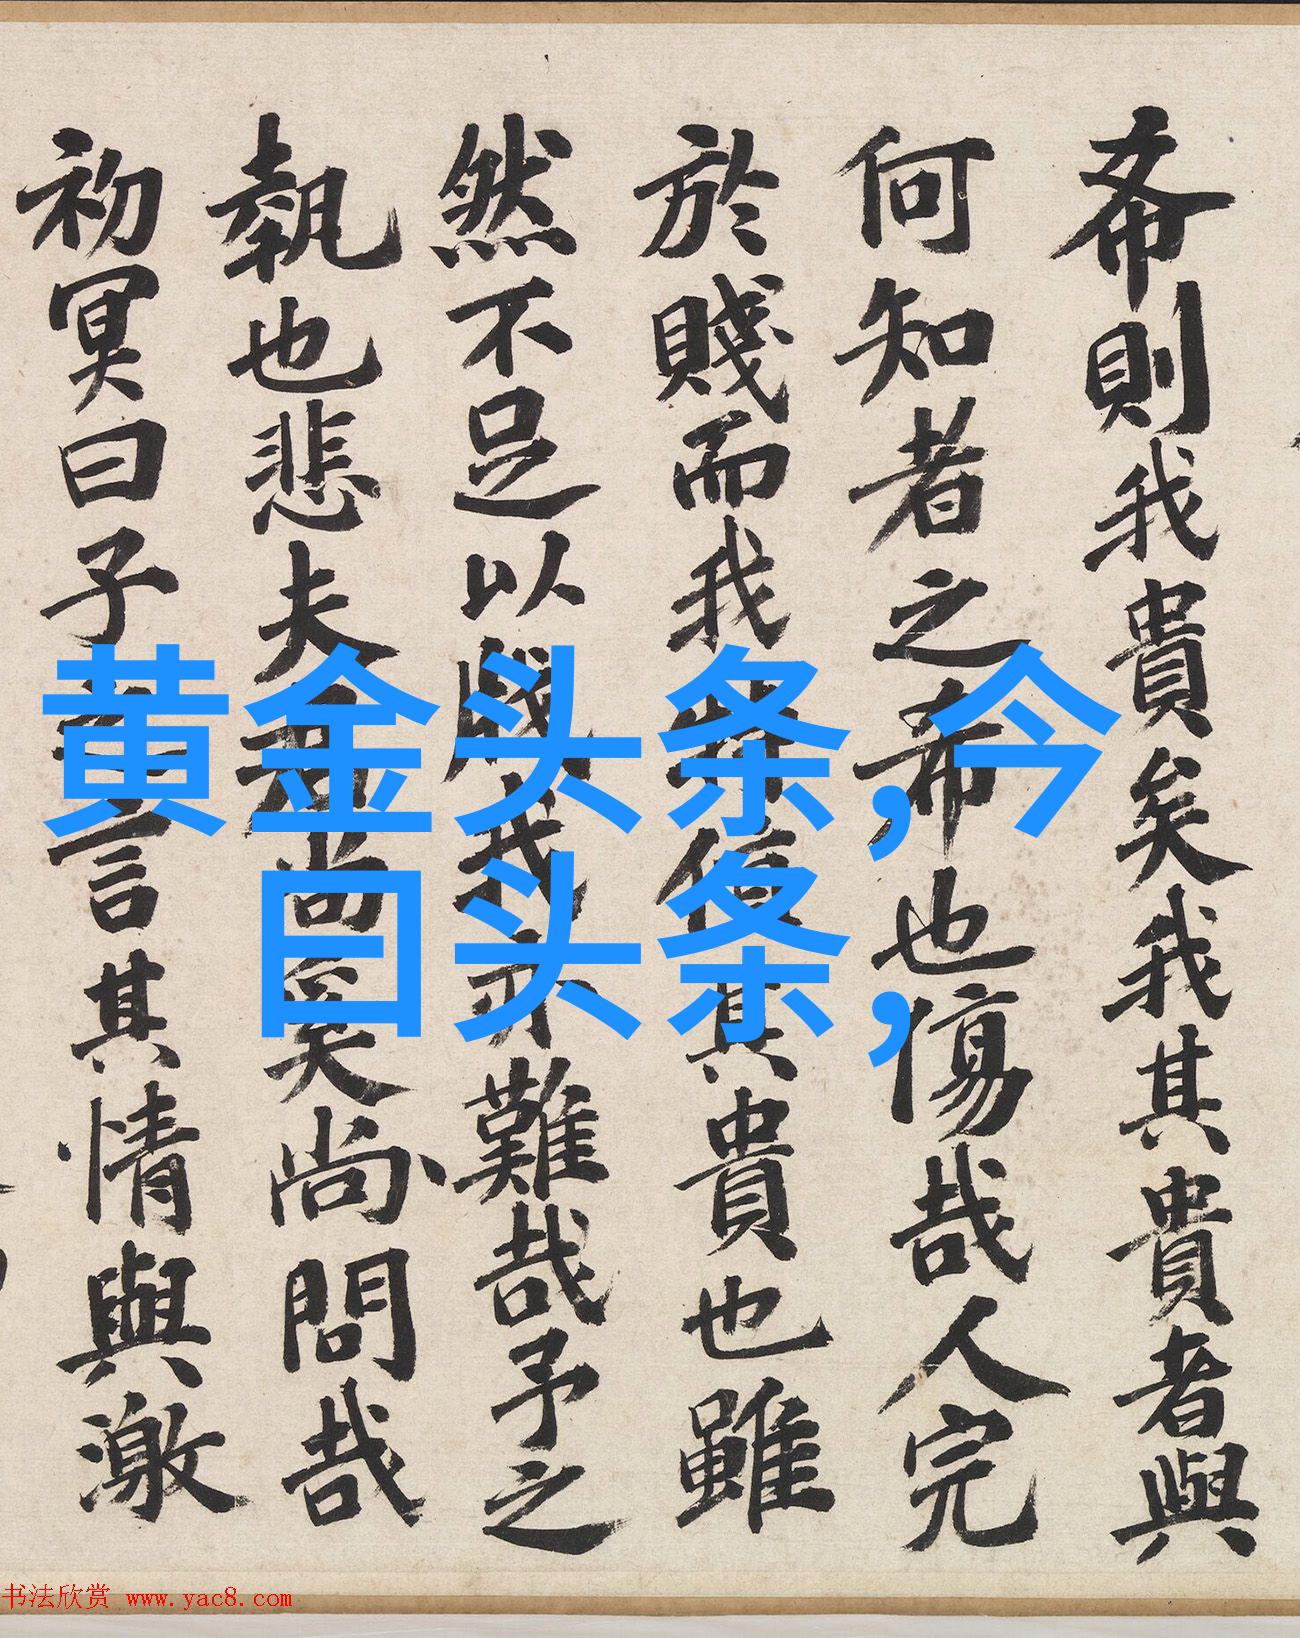 希則我貴矣我其貴者與
何知者之希也傷哉人完
於賤而我將信其貴也雖
然不足以戲我亦難哉予之
執也悲夫君尚矣尚問哉
初冥曰子之言其情與激
黄金头条,今
日头条,
书法欣赏 www.yac8.com